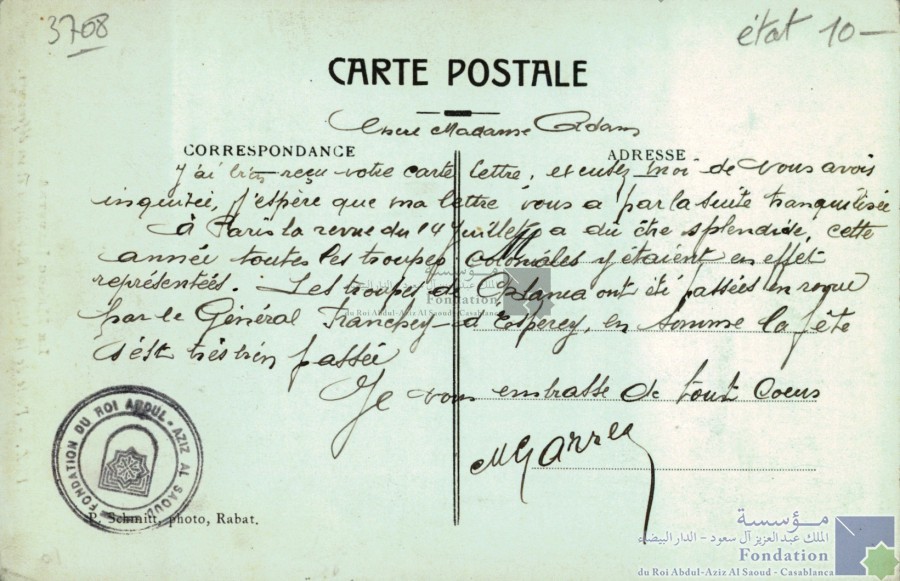 3708
état 10-
CARTE POSTALE
Chère Madame Adam
CORRESPONDANCE
ADRESSE
J'ai bien reçu votre carte lettre, excusez moi de vous avoir
inquiétée, j'espère que ma lettre vous a par la suite tranquilisée
À Paris la revue du 14 Juillet a dû être splendide, cette
année toutes les troupes coloniales y étaient en effet
représentées. Les troupes de ont été passées en revue
par le Général Franchey-d'Esperey, en somme la fête
s'est très bien passée
Je vous embrasse de tout coeur
FONDATION DU ROI ABDUL-AZIZ AL SAOUD
P. Schmitt, photo, Rabat.
مؤسسة
الملك عبد العزيز آل سعود - الدار البيضاء
Fondation
du Roi Abdul-Aziz Al Saoud - Casablanca
مؤسسة
الملك عبد العزيز آل سعود - الدار البيضاء
Fondation
du Roi Abdul-Aziz Al Saoud - Casablanca